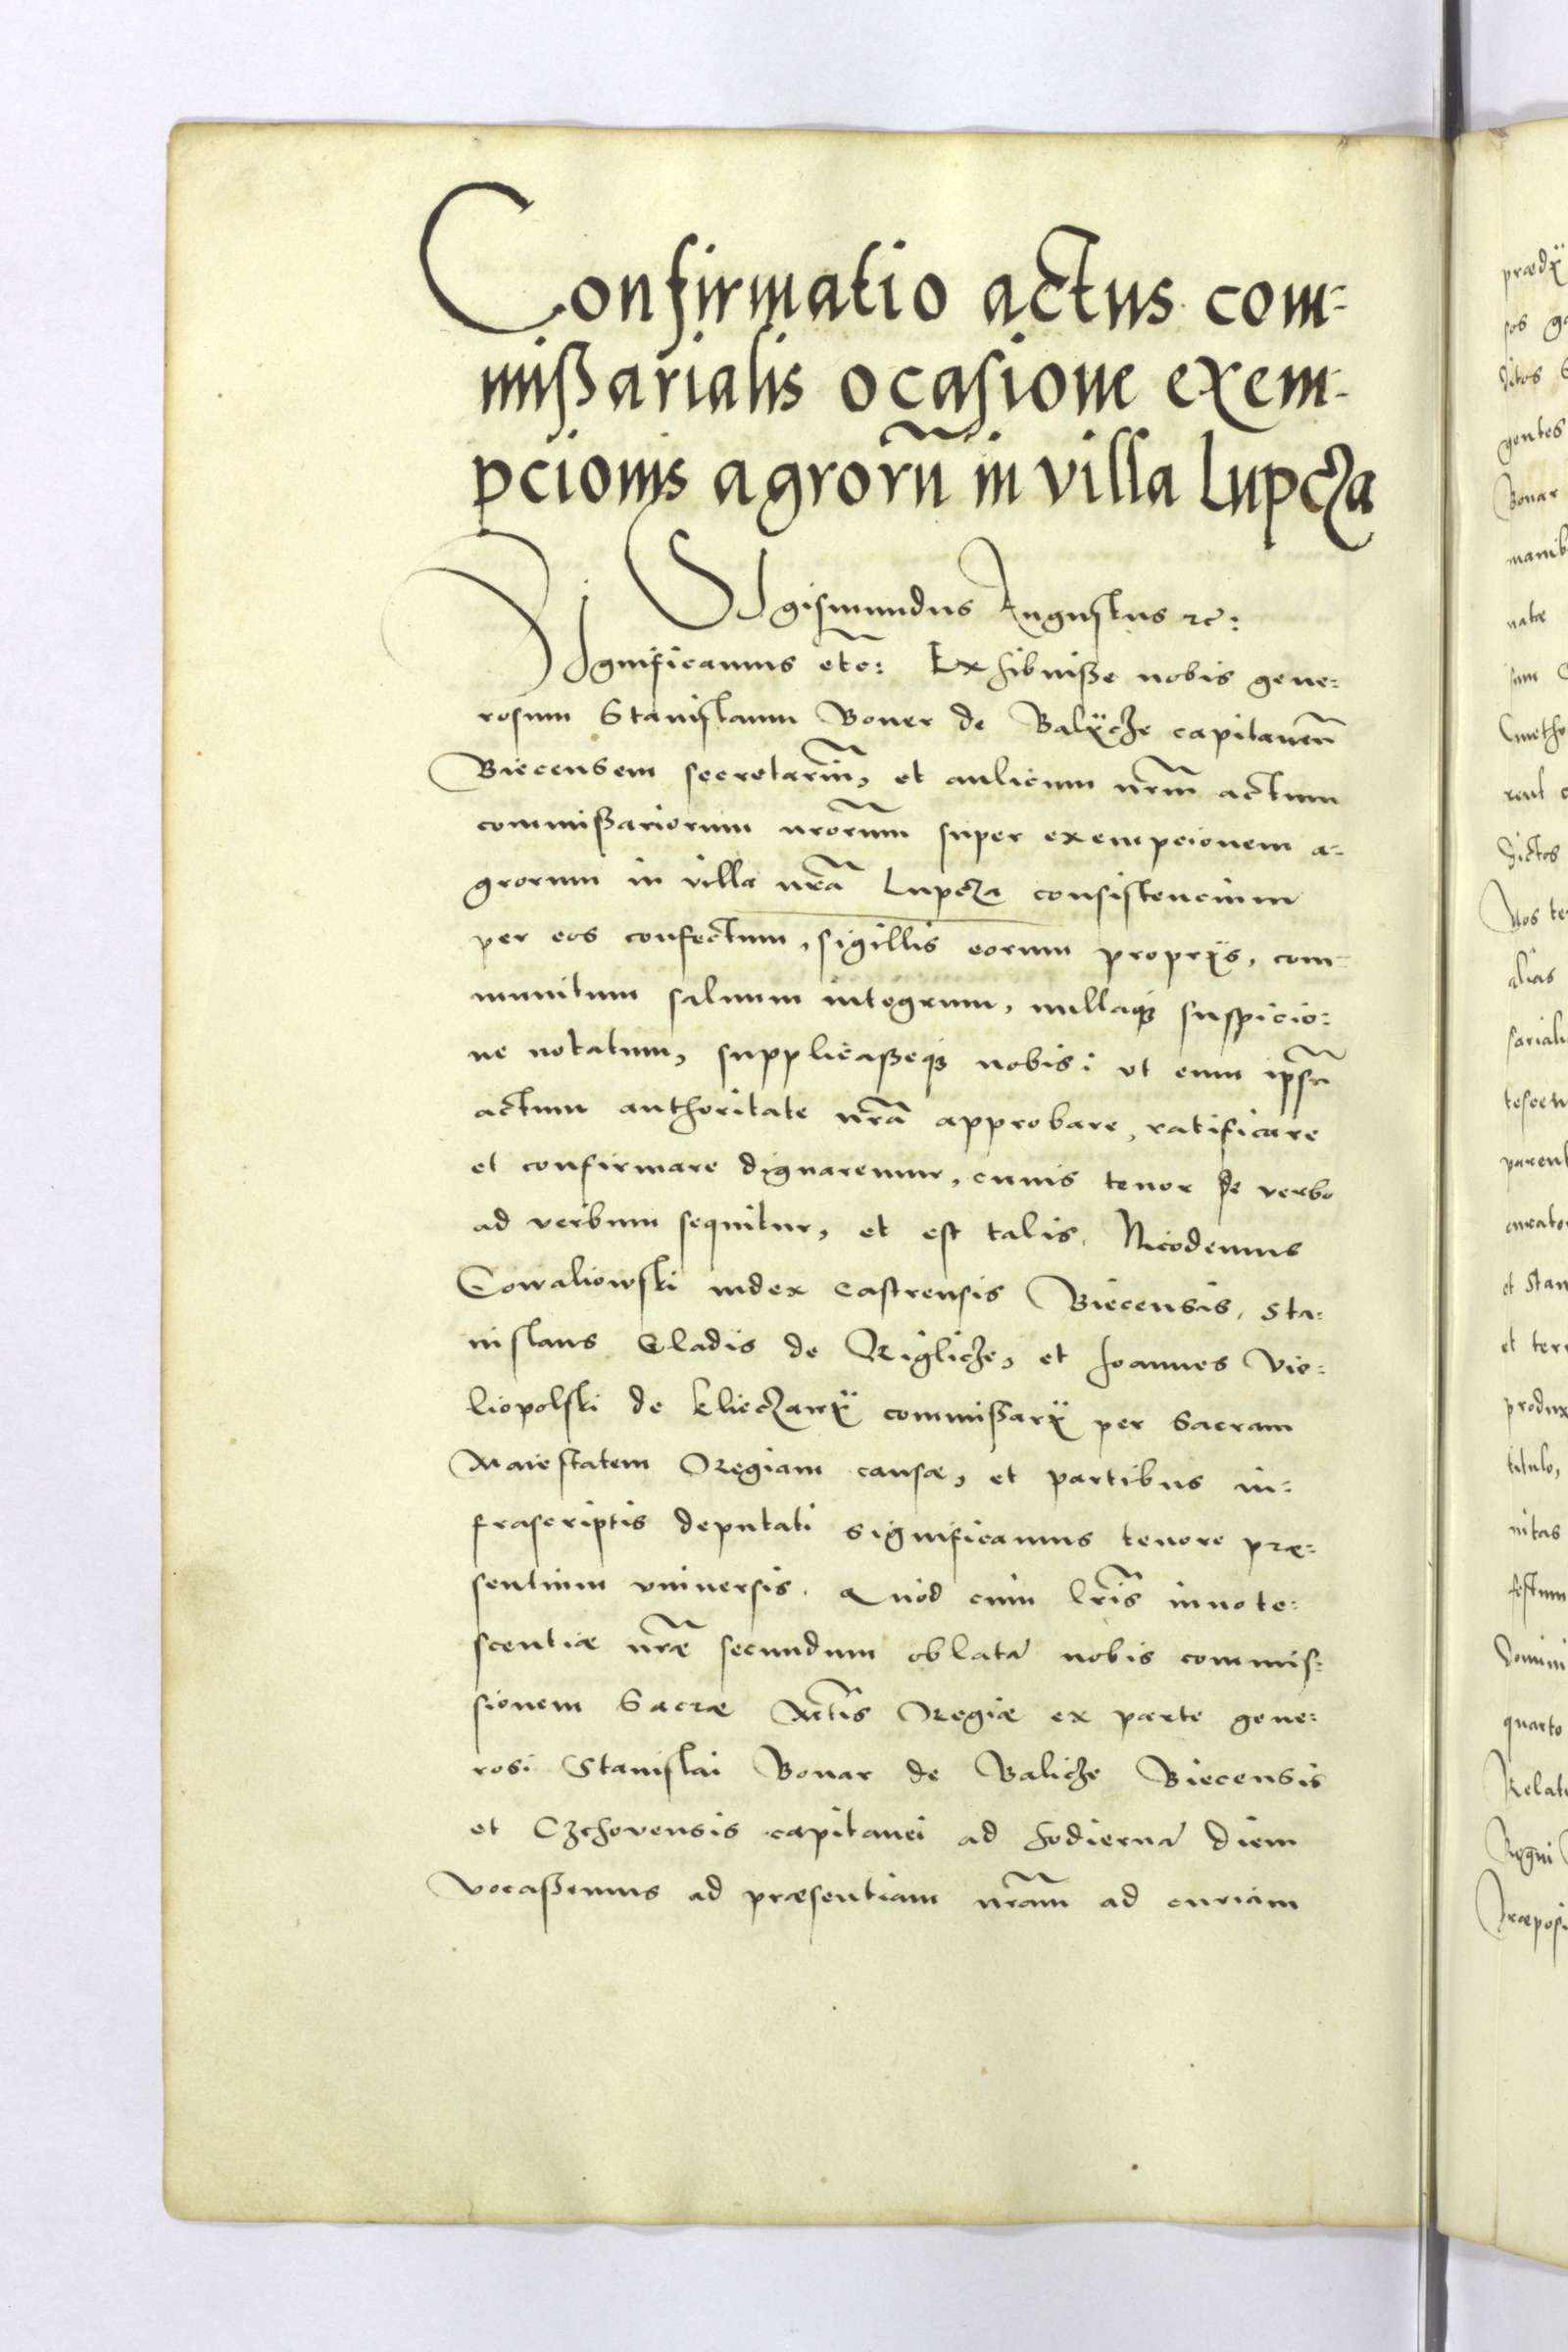 Confirmatio actus com-
mißarialis ocasione exem-
pcionis agrorũ in villa Lupcza
Sigismundus Augustus etc:
Significamus etc: Exhibuiße nobis gene:
rosum Stanislaum Boner de Balÿcze capitaneũ
Biecensem secretariũ, et aulicum nrm̃ actum
commißariorum nrorũm super exempcionem a-
grorum in villa nrã Lupcza consistencium
per eos confectum, sigillis eorum proprÿs, com-
munitum saluum integrum, nullaq₃ suspicio:
ne notatum, supplicaßeq₃ nobis: vt eum ipsũ
actum authoritate nrã approbare, ratificare
et confirmare dignaremur, cuius tenor de verbo
ad verbum sequitur, et est talis. Nicodemus
Cowaliowski iudex castrensis Biecensis, Sta:
nislaus Gladis de Riglicze, et Joannes Vie:
liopolski de Klieczanÿ commißarÿ per Sacram
Maiestatem Regiam causæ, et partibus in:
frascriptis deputati significamus tenore præ:
sentium vniversis. Quod cum lrĩs innote:
scentiæ nræ̃ secundum oblatã nobis commis:
sionem Sacræ Mtĩs Regiæ ex parte gene:
rosi Stanislai Bonar de Balicze Biecensis
et Czchovensis capitanei ad hodiernã diem
vocaßemus ad præsentiam nrãm ad curiam
prædÿ
sos
ditos
gentes
Bonar
manib
natæ
sum
Cmetho
rent
dictos
Nos te
alias
sariali
parent
et Stan
et terr
produx
titulo,
nitas
festum
Domini
quarto
Relat
Regni
Præposi